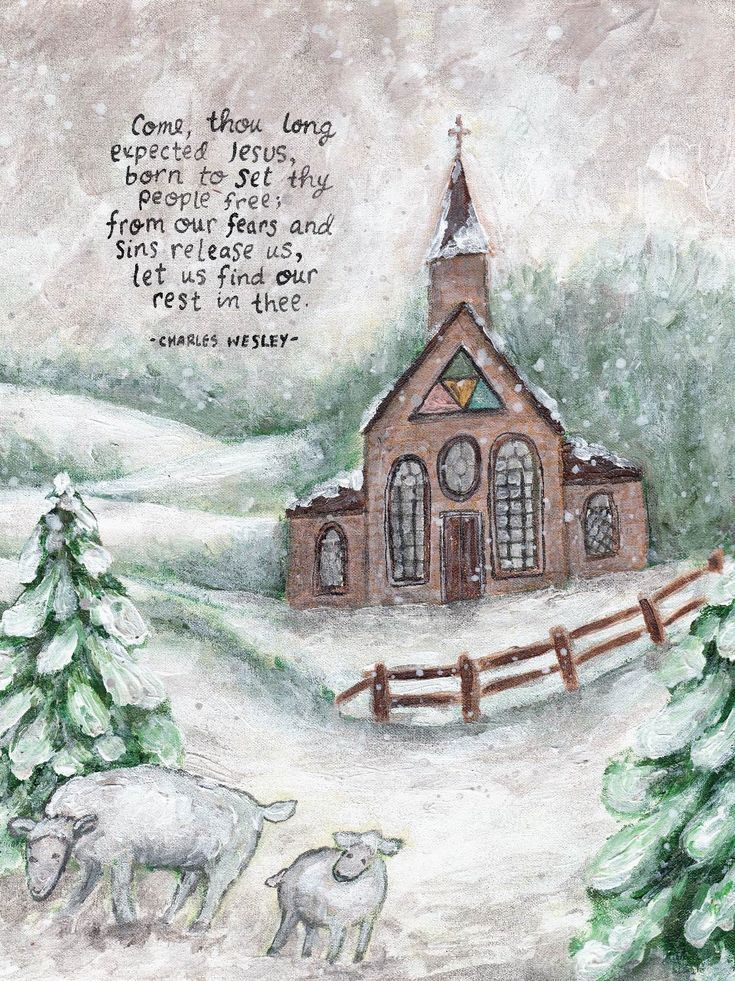 Come, thou long
expected Jesus,
born to set thy
people free;
from our fears and
sins release us,
let us find our
rest in thee.
-CHARLES WESLEY-